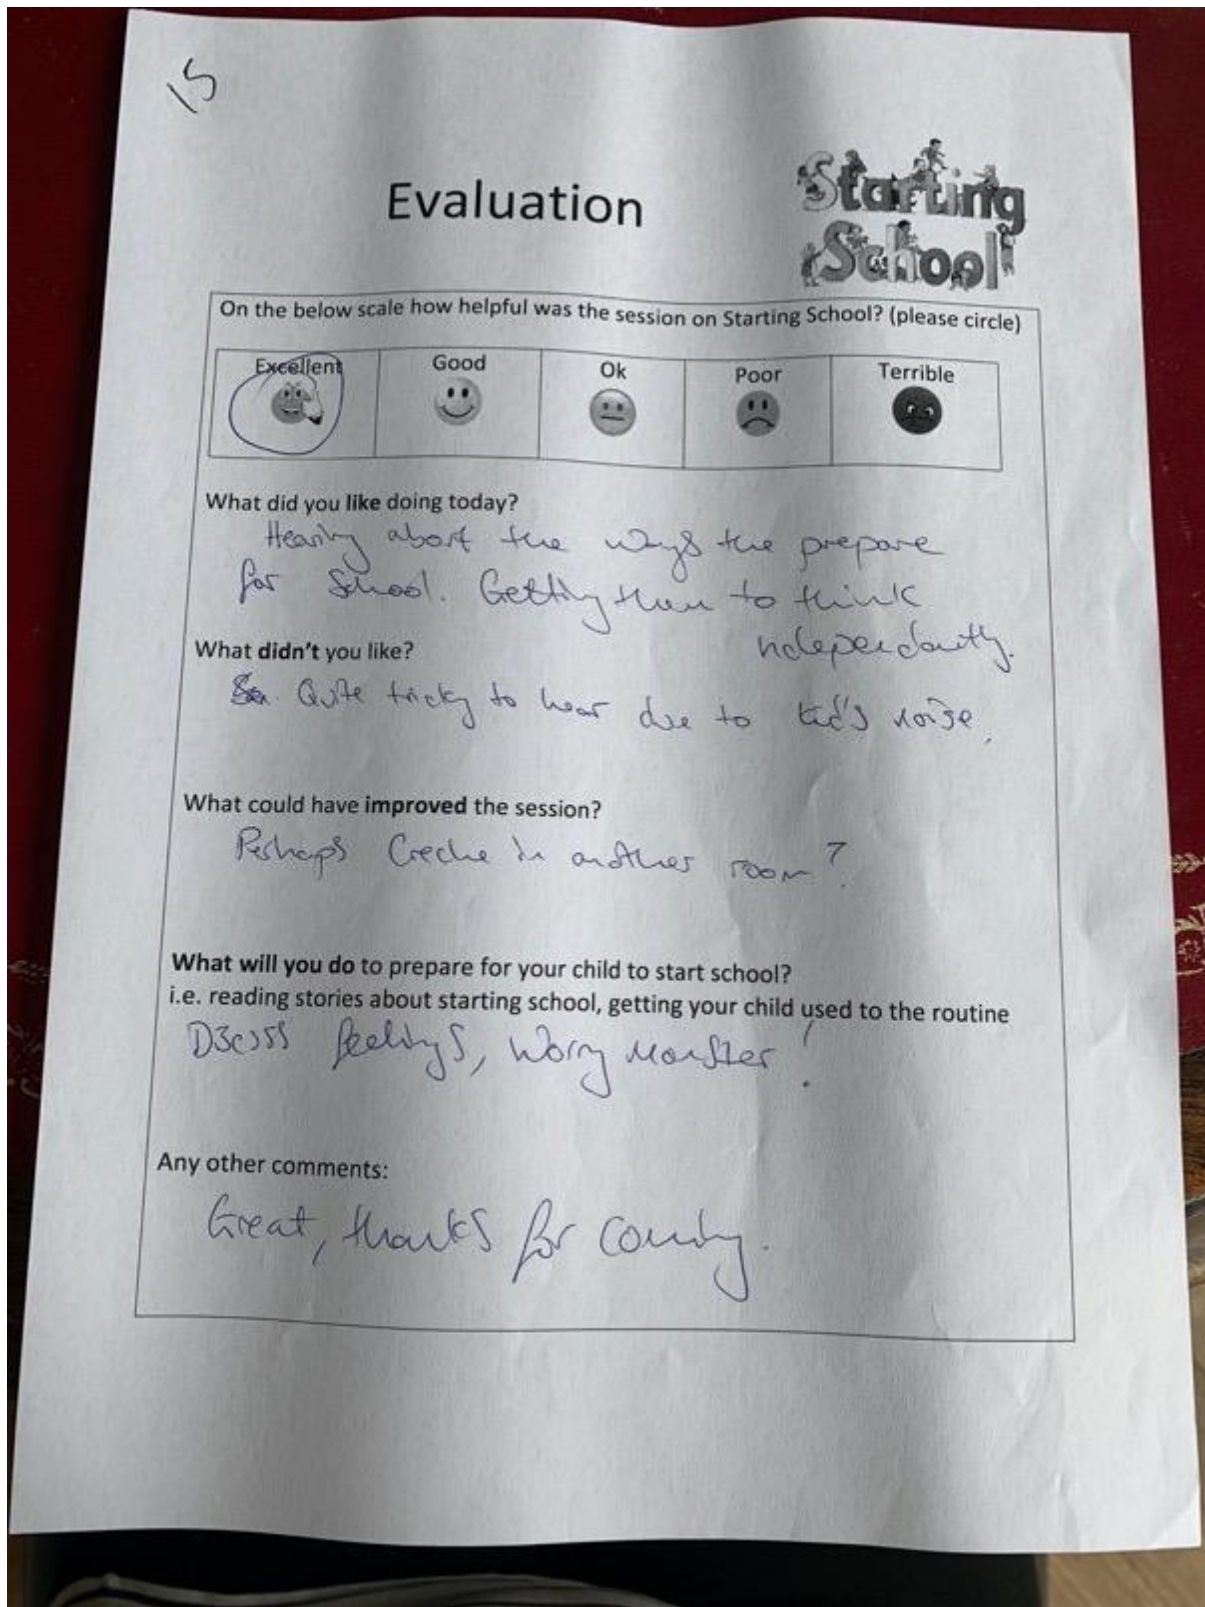 15
Evaluation
Starting
School
On the below scale how helpful was the session on Starting School? (please circle)
Excellent Good Ok Poor Terrible
What did you like doing today?
Hearing about the ways the prepare
for School. Getting them to think
independantly.
What didn't you like?
Quite tricky to hear due to kid's noise.
What could have improved the session?
Perhaps Creche in another room?
What will you do to prepare for your child to start school?
i.e. reading stories about starting school, getting your child used to the routine
Discuss feelings, Worry Monster!
Any other comments:
Great, thanks for coming.